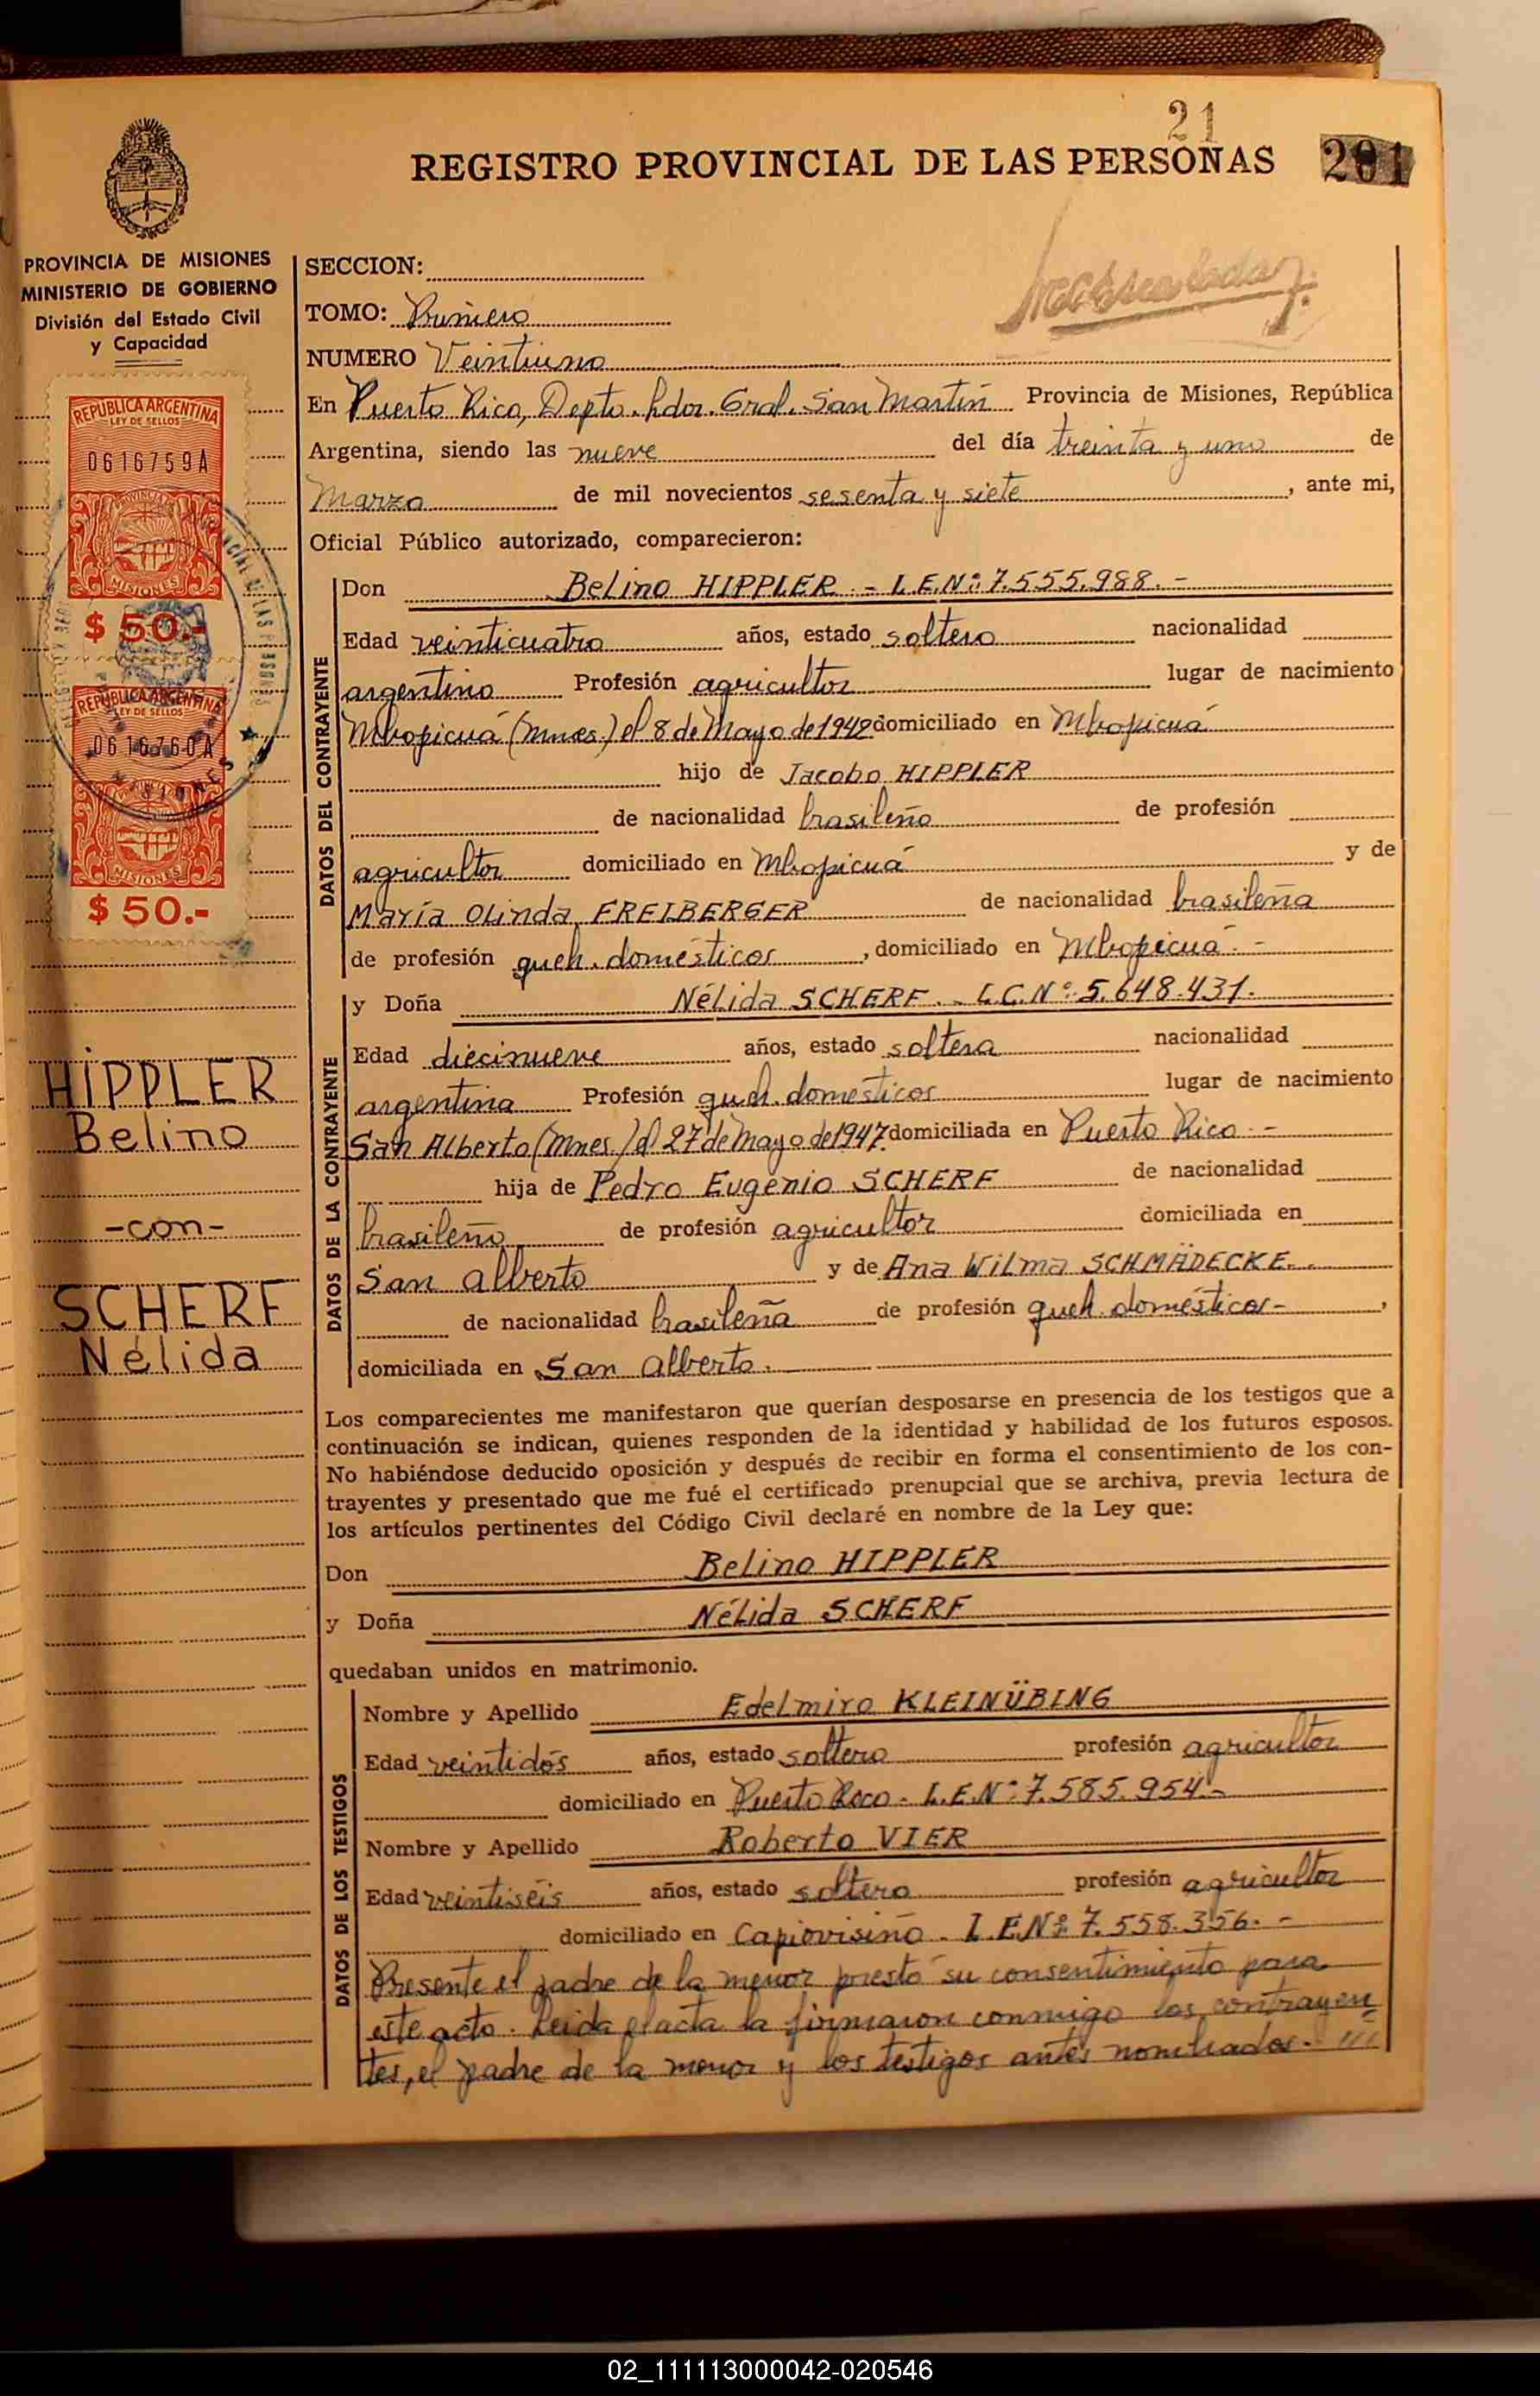 21
REGISTRO PROVINCIAL DE LAS PERSONAS 201
PROVINCIA DE MISIONES
MINISTERIO DE GOBIERNO
División del Estado Civil
y Capacidad
SECCION:
TOMO: Primero
NUMERO Veintiuno
En Puerto Rico, Depto. Ldor. Gral. San Martín Provincia de Misiones, República
Argentina, siendo las nueve del día treinta y uno de
Marzo de mil novecientos sesenta y siete, ante mi,
Oficial Público autorizado, comparecieron:
REPUBLICA ARGENTINA
LEY DE SELLOS
0616759A
MISIONES
$ 50.-
REPUBLICA ARGENTINA
LEY DE SELLOS
0616760A
MISIONES
$ 50.-
HIPPLER
Belino
-con-
SCHERF
Nélida
DATOS DEL CONTRAYENTE
Don Belino HIPPLER.- L.E.Nº: 7.555.988.-
Edad veinticuatro años, estado soltero nacionalidad
argentino Profesión agricultor lugar de nacimiento
Mbopicuá (Mnes.) el 8 de Mayo de 1942 domiciliado en Mbopicuá
hijo de Jacobo HIPPLER
de nacionalidad brasileño de profesión
agricultor domiciliado en Mbopicuá y de
María Olinda FREIBERGER de nacionalidad brasileña
de profesión queh. domésticos, domiciliado en Mbopicuá.-
DATOS DE LA CONTRAYENTE
y Doña Nélida SCHERF.- L.C.Nº: 5.648.431.
Edad diecinueve años, estado soltera nacionalidad
argentina Profesión queh. domésticos lugar de nacimiento
San Alberto (Mnes.) el 27 de Mayo de 1947 domiciliada en Puerto Rico.-
hija de Pedro Eugenio SCHERF de nacionalidad
brasileño de profesión agricultor domiciliada en
San Alberto y de Ana Wilma SCHMÄDECKE.
de nacionalidad brasileña de profesión queh. domésticos-,
domiciliada en San Alberto.
Los comparecientes me manifestaron que querían desposarse en presencia de los testigos que a
continuación se indican, quienes responden de la identidad y habilidad de los futuros esposos.
No habiéndose deducido oposición y después de recibir en forma el consentimiento de los con-
trayentes y presentado que me fué el certificado prenupcial que se archiva, previa lectura de
los artículos pertinentes del Código Civil declaré en nombre de la Ley que:
Don Belino HIPPLER
y Doña Nélida SCHERF
quedaban unidos en matrimonio.
DATOS DE LOS TESTIGOS
Nombre y Apellido Edelmiro KLEINÜBING
Edad veintidós años, estado soltero profesión agricultor
domiciliado en Puerto Rico.- L.E.Nº: 7.585.954.-
Nombre y Apellido Roberto VIER
Edad veintiseis años, estado soltero profesión agricultor
domiciliado en Capiovisiño.- L.E.Nº: 7.558.356.-
Presente el padre de la menor prestó su consentimiento para
este acto. Leida el acta la firmaron conmigo los contrayen
tes, el padre de la menor y los testigos antes nombrados.- ///
02_111113000042-020546